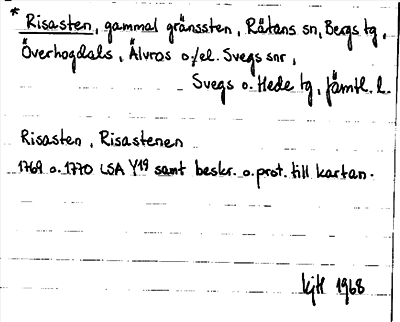 * Risasten, gammal gränssten, Rätans sn, Bergs tg,
Överhogdals, Älvros o./el. Svegs snr,
Svegs o. Hede tg, Jämtl. l.
Risasten, Risastenen
1769 o. 1770 LSA Y19 samt beskr. o. prot. till kartan.
1968